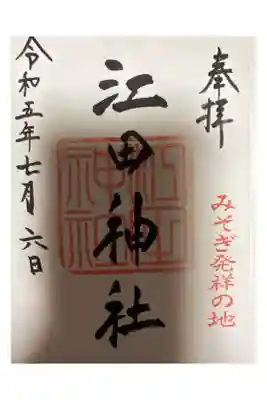 奉拝
みそぎ発祥の地
江田神社
令和五年七月六日